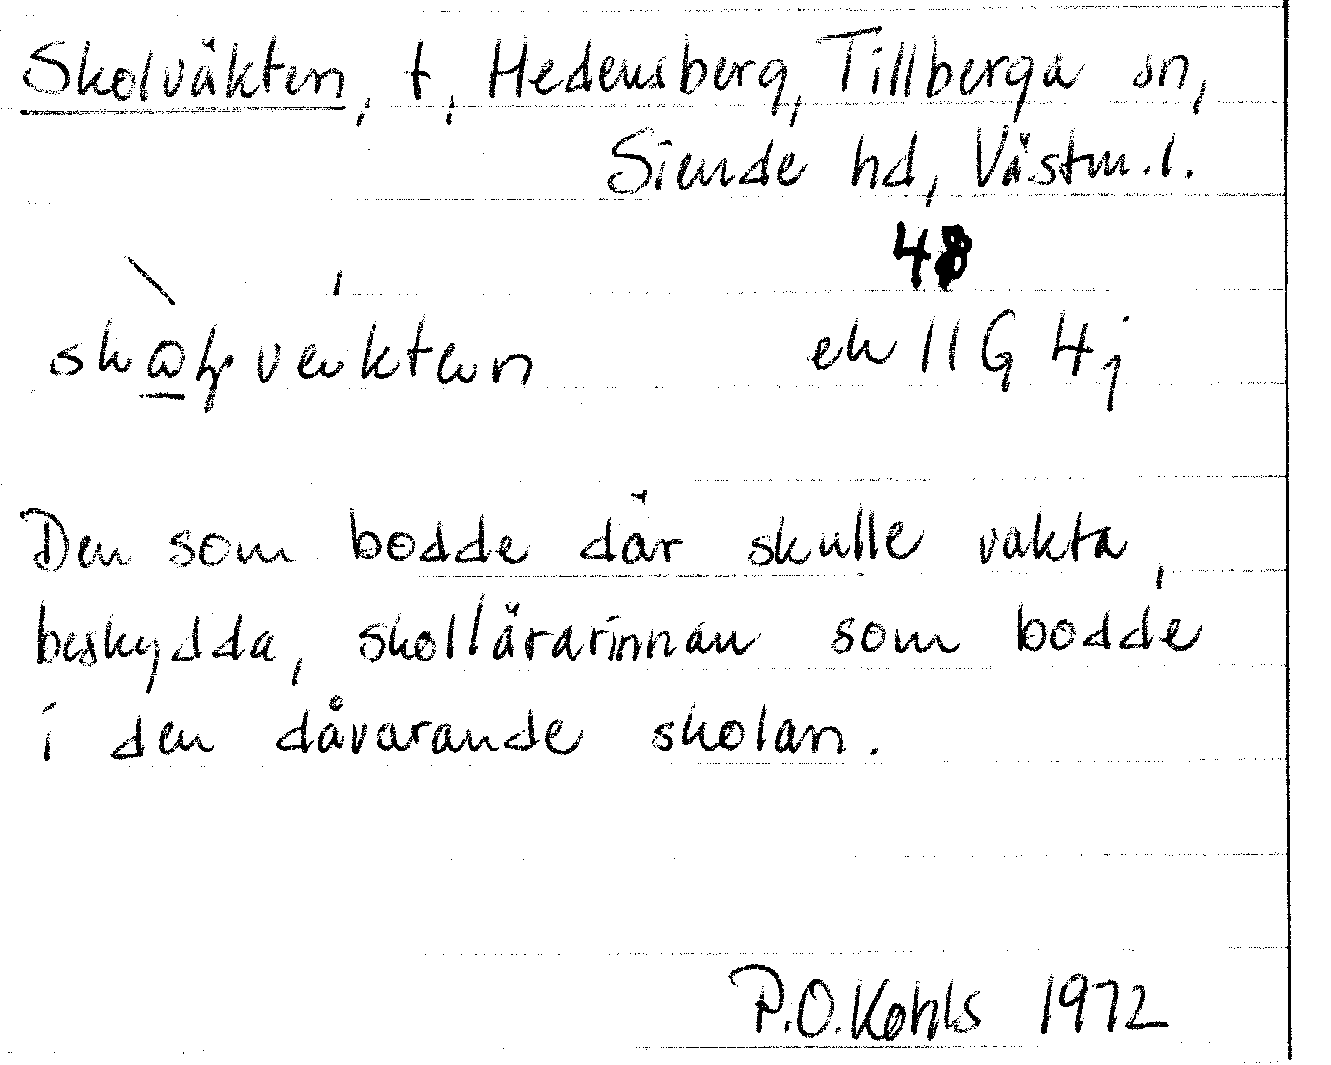 Skolväkten, t, Hedensberg, Tillberga sn,
Siende hd, Västm.l.
48
ek 11G 4j
Den som bodde där skulle vakta,
beskydda, skollärarinnan som bodde
i den dåvarande skolan.
P.O.Kohls 1972